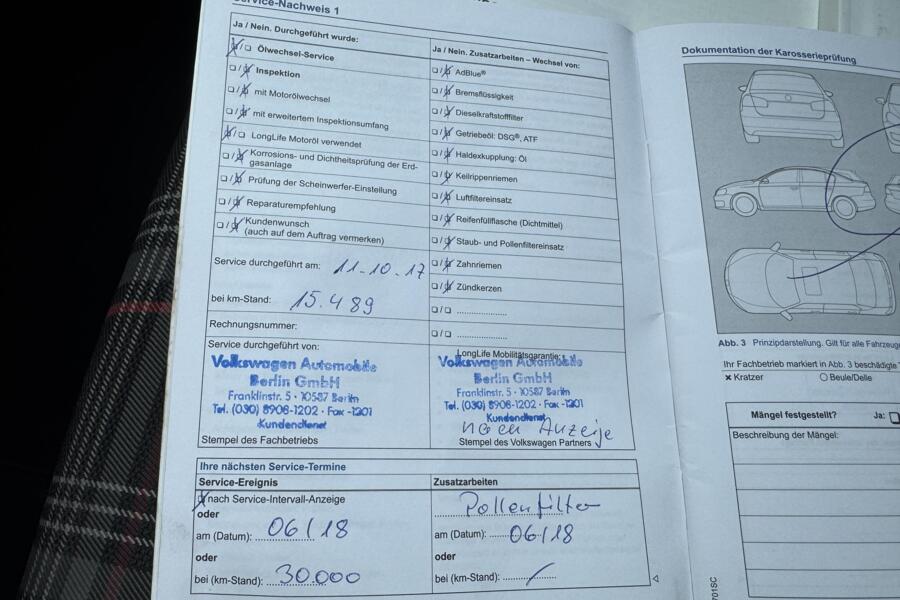 Service-Nachweis 1
Ja / Nein. Durchgeführt wurde:
Ölwechsel-Service
Inspektion
mit Motorölwechsel
mit erweitertem Inspektionsumfang
LongLife Motoröl verwendet
Korrosions- und Dichtheitsprüfung der Erd-
gasanlage
Prüfung der Scheinwerfer-Einstellung
Reparaturempfehlung
Kundenwunsch
(auch auf dem Auftrag vermerken)
Service durchgeführt am: 11.10.17
bei km-Stand: 15.489
Rechnungsnummer:
Service durchgeführt von:
Volkswagen Automobile
Berlin GmbH
Franklinstr. 5 · 10587 Berlin
Tel. (030) 8906-1202 · Fax -1201
Kundendienst
Stempel des Fachbetriebs
Ja / Nein. Zusatzarbeiten – Wechsel von:
AdBlue®
Bremsflüssigkeit
Dieselkraftstofffilter
Getriebeöl: DSG®, ATF
Haldexkupplung: Öl
Keilrippenriemen
Luftfiltereinsatz
Reifenfüllflasche (Dichtmittel)
Staub- und Pollenfiltereinsatz
Zahnriemen
Zündkerzen
LongLife Mobilitätsgarantie:
Volkswagen Automobile
Berlin GmbH
Franklinstr. 5 · 10587 Berlin
Tel. (030) 8906-1202 · Fax -1201
Kundendienst
nach Anzeige
Stempel des Volkswagen Partners
Ihre nächsten Service-Termine
Service-Ereignis
nach Service-Intervall-Anzeige
oder
am (Datum): 06/18
oder
bei (km-Stand): 30.000
Zusatzarbeiten
Pollenfilter
am (Datum): 06/18
oder
bei (km-Stand): /
Dokumentation der Karosserieprüfung
Abb. 3 Prinzipdarstellung. Gilt für alle
Ihr Fachbetrieb markiert in Abb. 3 beschädigte
× Kratzer ○ Beule/Delle
Mängel festgestellt? Ja:
Beschreibung der Mängel:
701SC